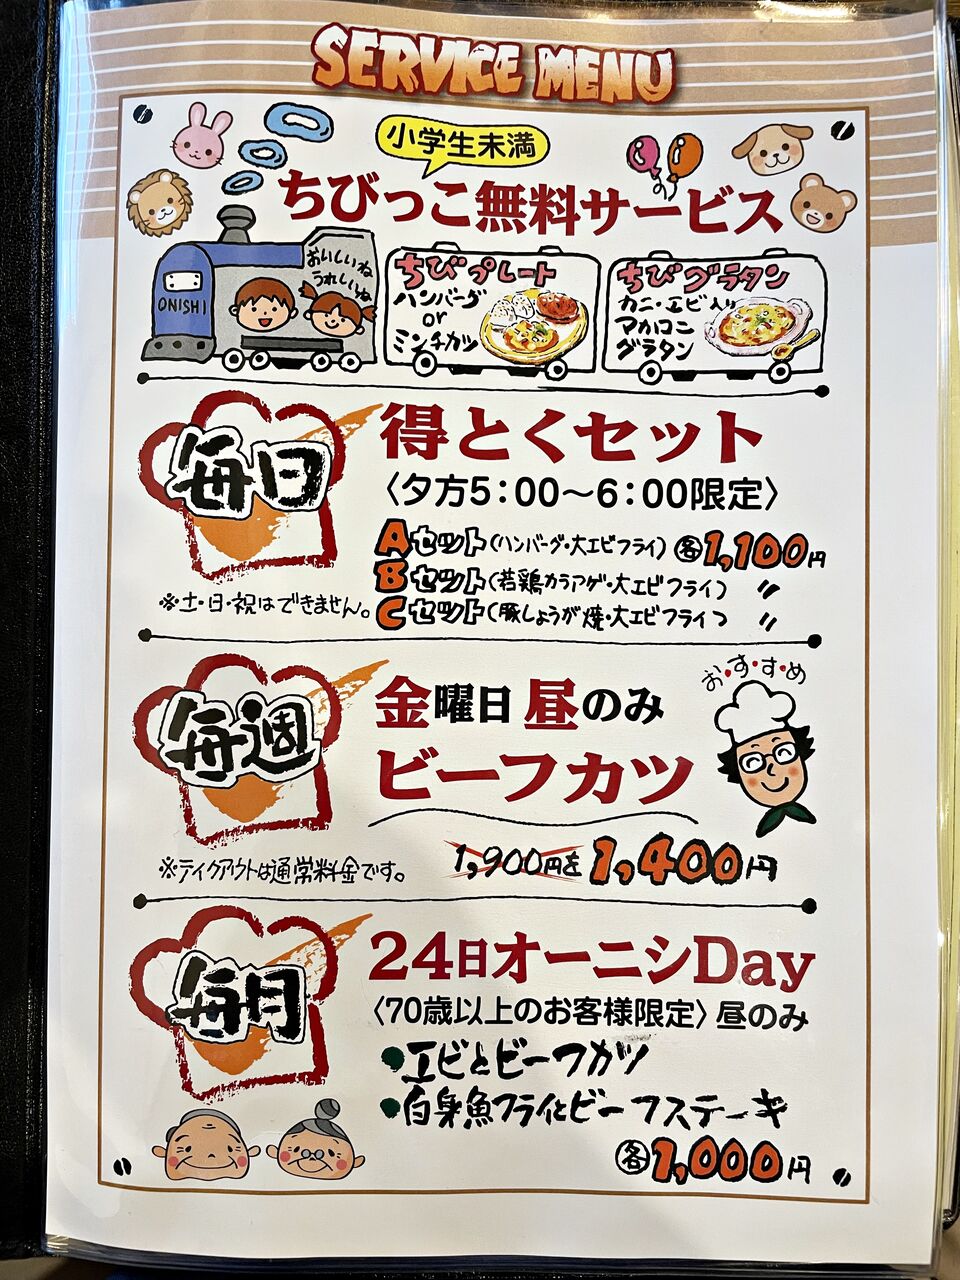 SERVICE MENU
小学生未満
ちびっこ無料サービス
おいしいね
うれしいね
ONISHI
ちびプレート
ハンバーグ
or
ミンチカツ
ちびグラタン
カニ・エビ入り
マカロニ
グラタン
毎日
得とくセット
〈夕方5:00〜6:00限定〉
Aセット(ハンバーグ・大エビフライ) 各1,100円
Bセット(若鶏カラアゲ・大エビフライ) 〃
Cセット(豚しょうが焼・大エビフライ) 〃
※土・日・祝はできません。
毎週
金曜日 昼のみ
おすすめ
ビーフカツ
1,900円を 1,400円
※テイクアウトは通常料金です。
毎月
24日オーニシDay
〈70歳以上のお客様限定〉昼のみ
●エビとビーフカツ
●白身魚フライとビーフステーキ
各1,000円